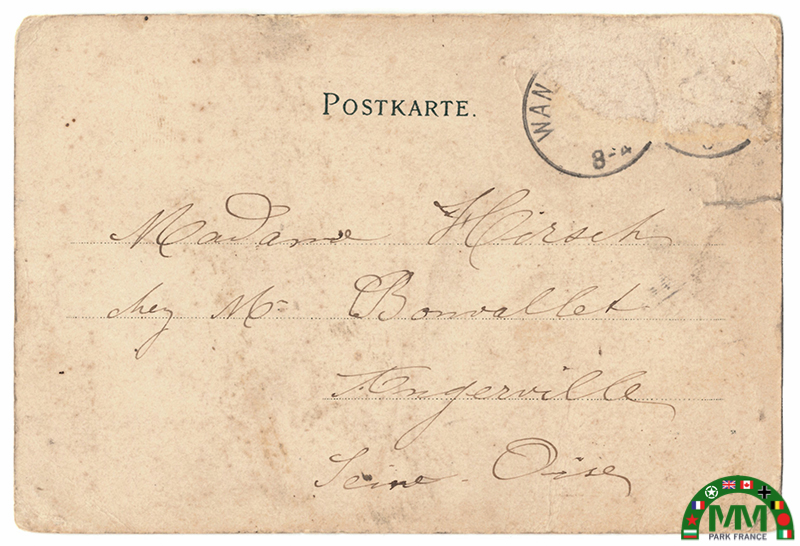 POSTKARTE.
WAN
8-4
Madame Hirsch
chez Mr Bonvallet
Angerville
Seine-Oise
MM
PARK FRANCE